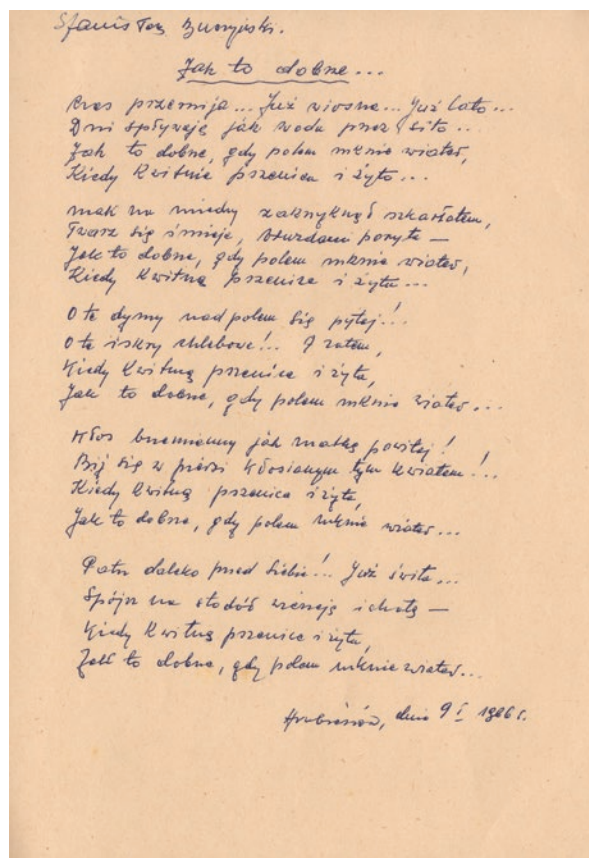 Jak to dobrze...
Czas przemija... Już wiosna... Już lato...
Dni spływają jak woda przez sito...
Jak to dobrze, gdy polem mknie wiater,
Kiedy kwitnie pszenica i żyto...
Mak na miedzy zakrzyknął szkarłatem,
Twarz się śmieje, bruzdami poryta —
Jak to dobrze, gdy polem mknie wiater,
Kiedy kwitną pszenice i żyta...
O te dymy nad polem się pytaj!..
O te iskry chlebowe!.. I zatem,
Kiedy kwitną pszenice i żyta,
Jak to dobrze, gdy polem mknie wiater...
Kłos brzemienny jak matkę powitaj!
Bij się w piersi kłosianym tym kwiatem!..
Kiedy kwitną pszenice i żyta,
Jak to dobrze, gdy polem mknie wiater...
Patrz daleko przed siebie!.. Już świta...
Spójrz na stodół wierzeje i chatę —
Kiedy kwitną pszenice i żyta,
Jak to dobrze, gdy polem mknie wiater...
Hrubieszów, dnia 9 I 1986 r.